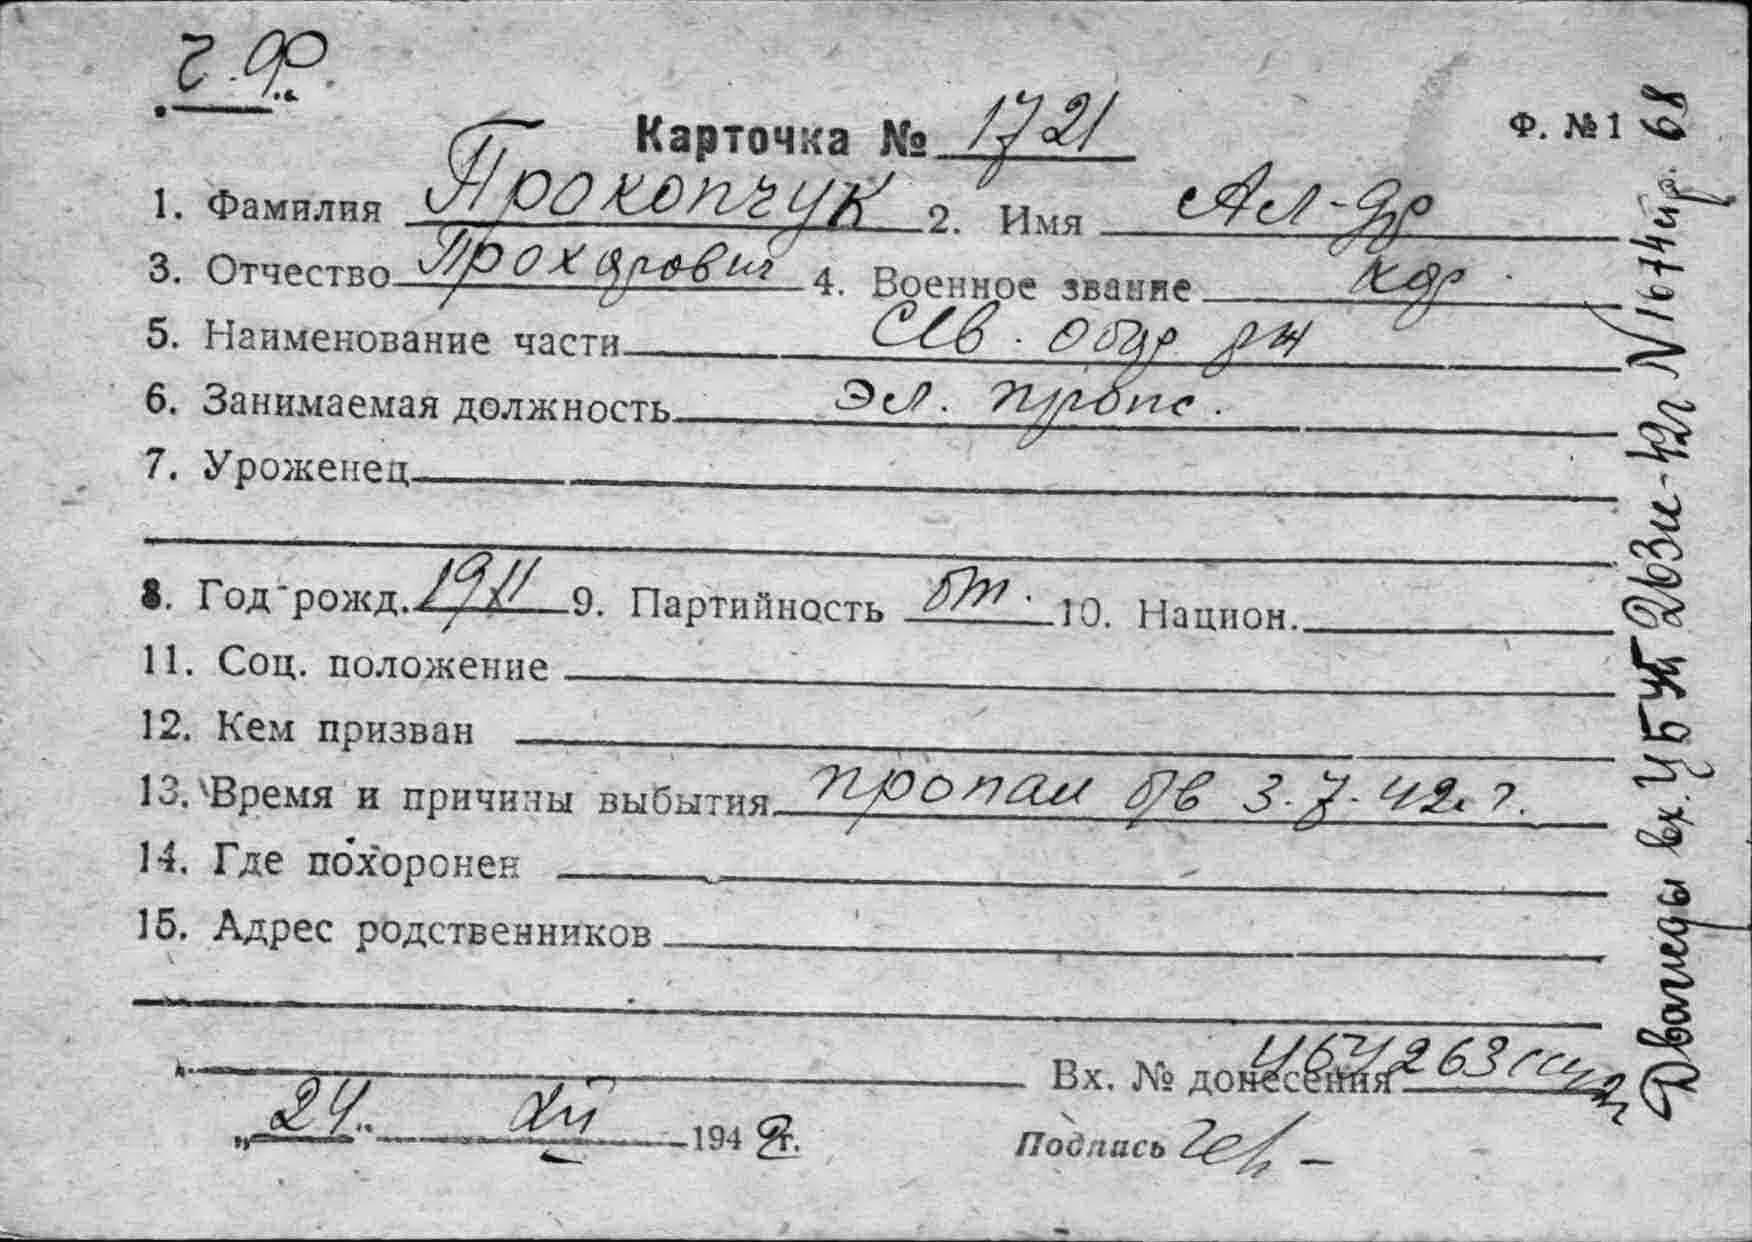 Ч.Ф.
Карточка № 1721 Ф. № 1
1. Фамилия Прокопчук 2. Имя Ал-др
3. Отчество Прохорович 4. Военное звание кф
5. Наименование части Сев. обор. рж
6. Занимаемая должность эл. пропс.
7. Уроженец
8. Год рожд. 1911 9. Партийность бп. 10. Национ.
11. Соц. положение
12. Кем призван
13. Время и причины выбытия пропал б/в 3.7.42 г.
14. Где похоронен
15. Адрес родственников
Вх. № донесения УБУ 263
„24“ XII 1942 г. Подпись
Дважды вх. УБУ 263 42г N 1674 68